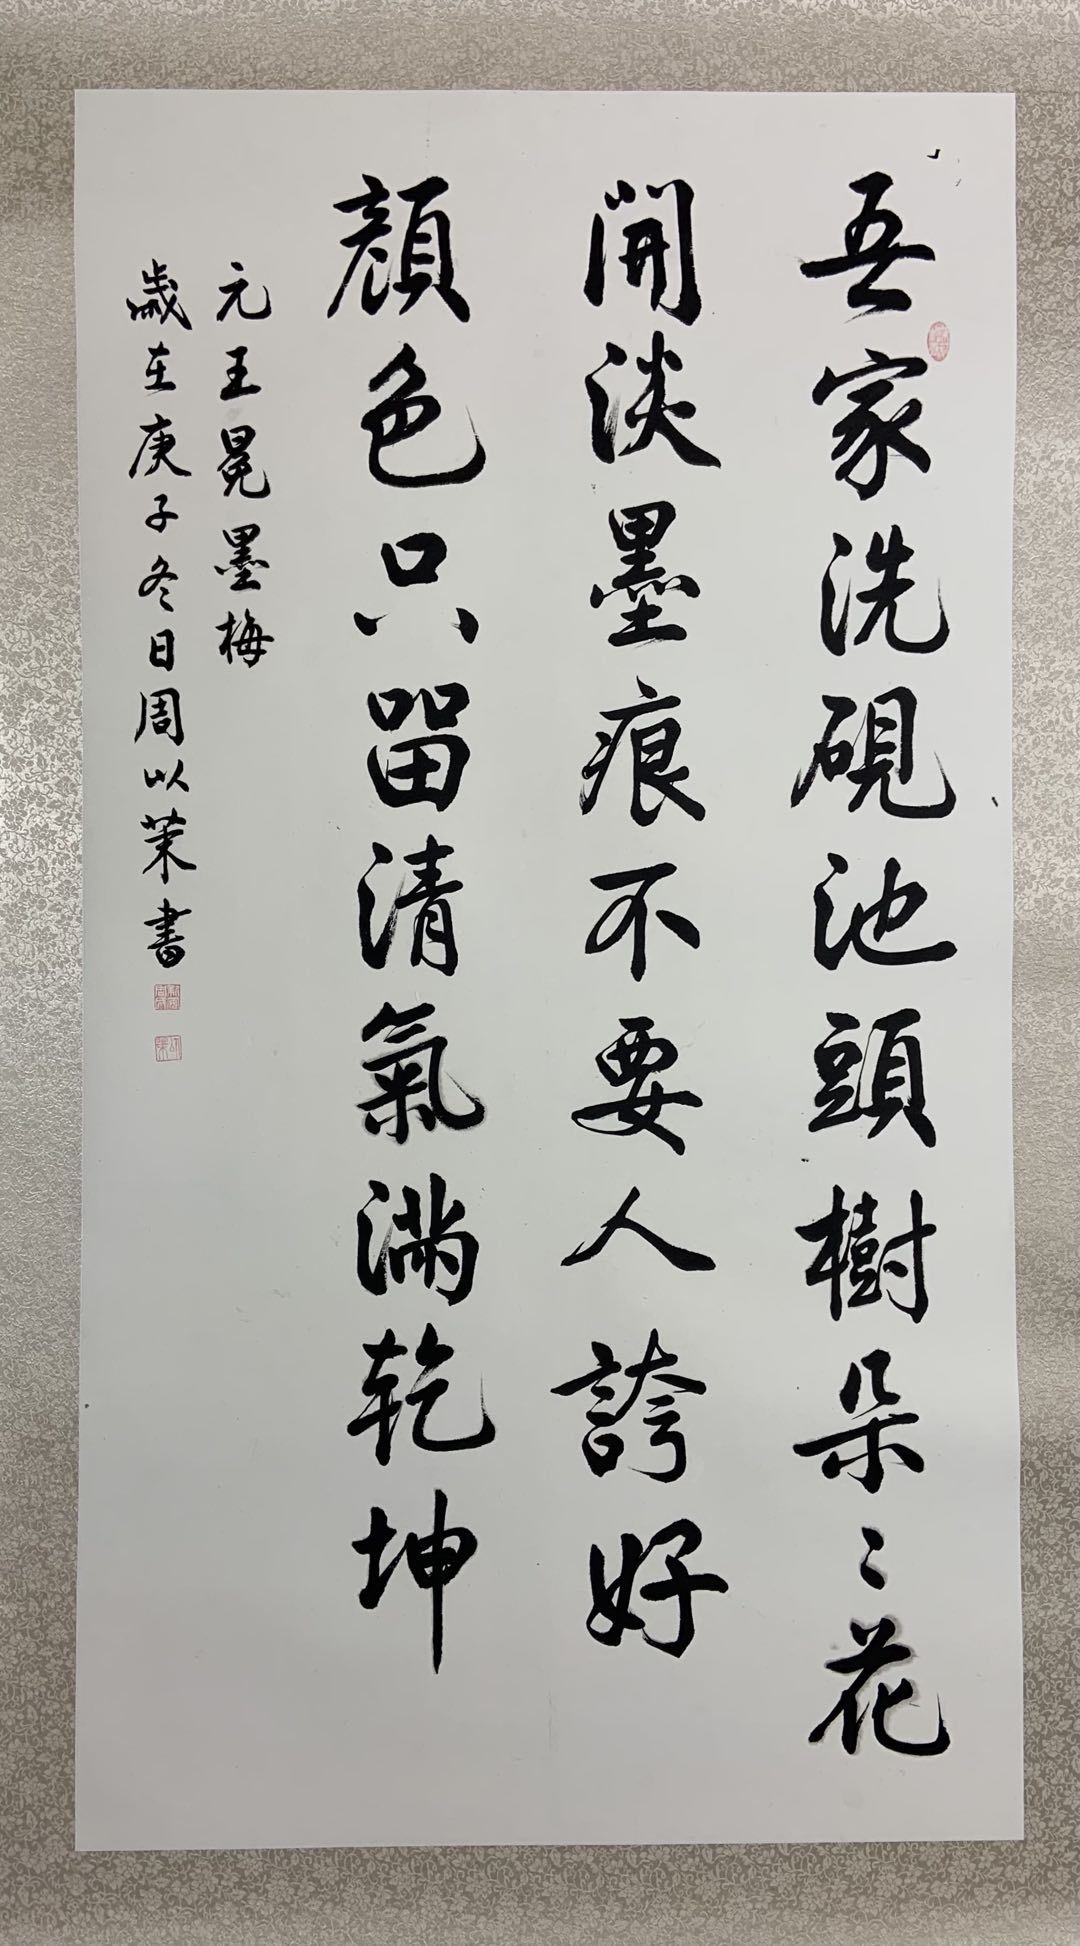 吾家洗硯池頭樹朵〻花
開淡墨痕不要人誇好
顏色只留清氣滿乾坤
元王冕墨梅
歲在庚子冬日周以葉書